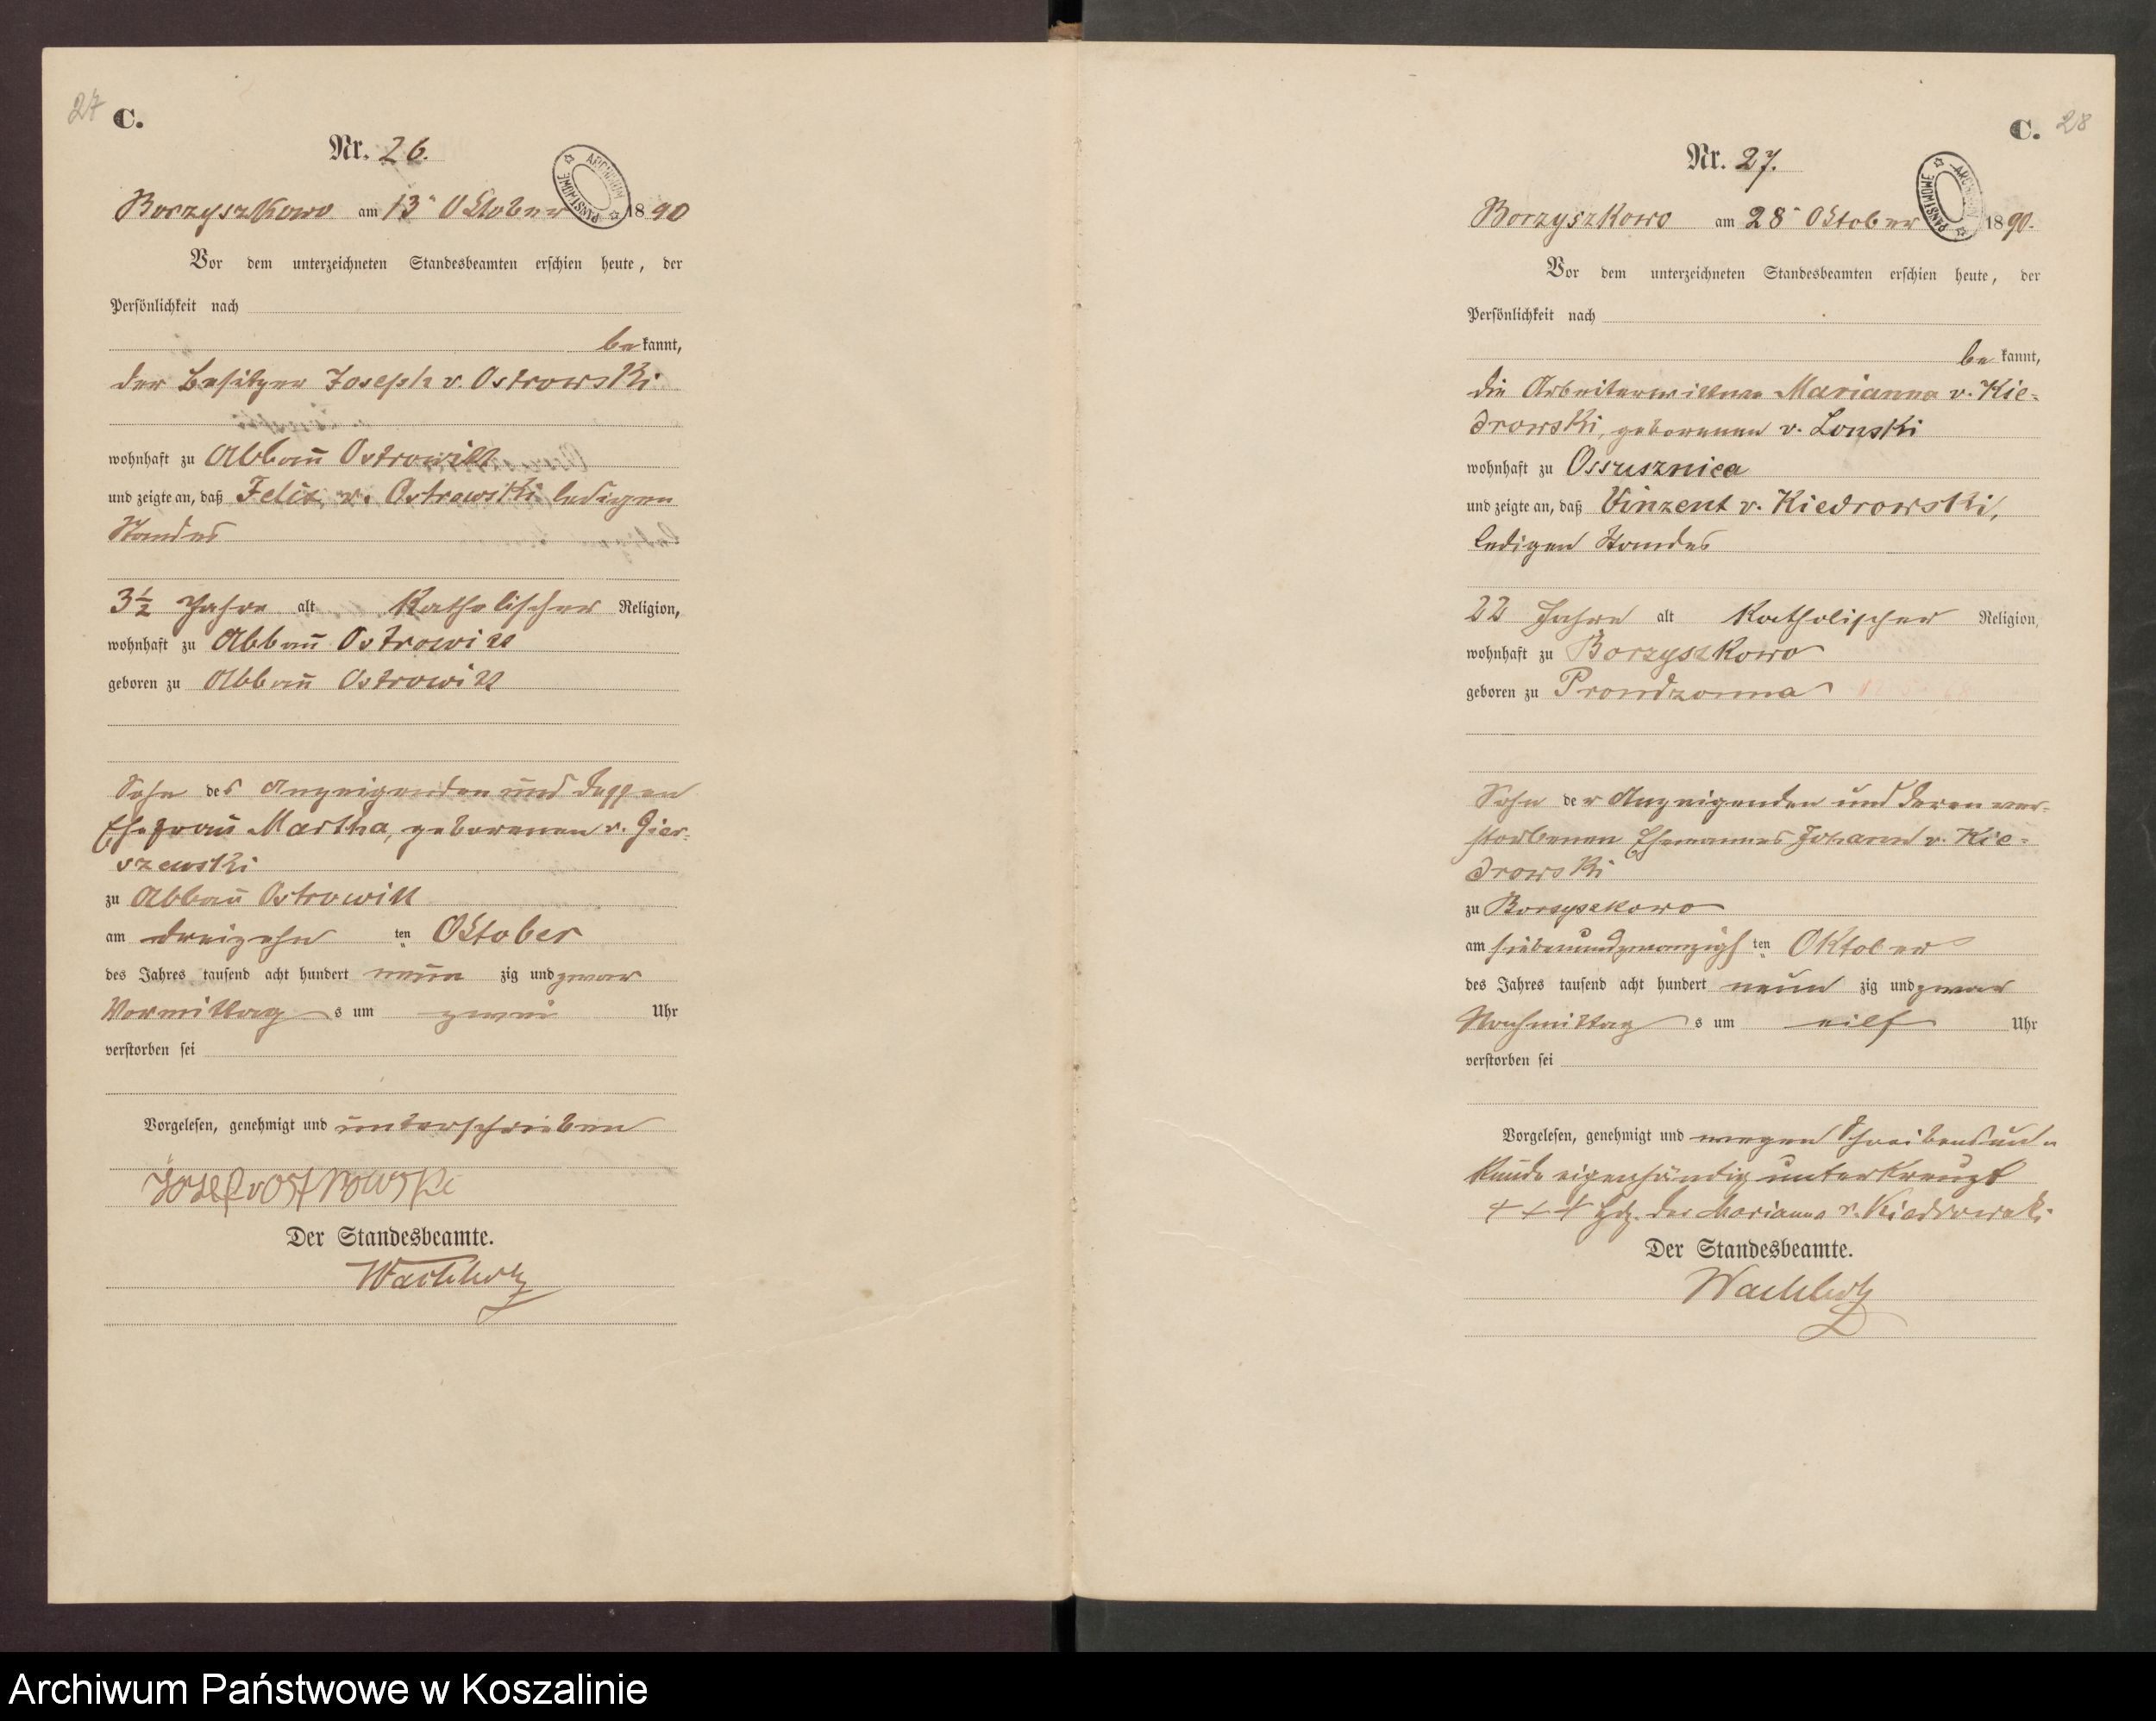 27
C.
Nr. 26.
ARCHIWUM PAŃSTWOWE
Borzyszkowo am 13ᵗ Oktober 1890
Vor dem unterzeichneten Standesbeamten erschien heute, der
Persönlichkeit nach
bekannt,
der Besitzer Joseph v. Ostrowski
wohnhaft zu Abbau Ostrowitt
und zeigte an, daß Felix v. Ostrowski ledigen
Standes
3½ Jahre alt Katholischer Religion,
wohnhaft zu Abbau Ostrowitt
geboren zu Abbau Ostrowitt
Sohn des Anzeigenden und dessen
Ehefrau Martha, geborenen v. Gier-
szewski
zu Abbau Ostrowitt
am dreizehn ten Oktober
des Jahres tausend acht hundert neun zig und zwar
Vormittags um zwei Uhr
verstorben sei
Vorgelesen, genehmigt und unterschrieben
Josef v Ostrowski
Der Standesbeamte.
Wachholz
C. 28
Nr. 27.
ARCHIWUM PAŃSTWOWE
Borzyszkowo am 28ᵗ Oktober 1890.
Vor dem unterzeichneten Standesbeamten erschien heute, der
Persönlichkeit nach
bekannt,
die Arbeiterwittwe Marianna v. Kie-
drowski, geborenen v. Lonski
wohnhaft zu Ossusznica
und zeigte an, daß Vinzent v. Kiedrowski,
ledigen Standes
22 Jahre alt Katholischer Religion,
wohnhaft zu Borzyszkowo
geboren zu Prondzonna
Sohn der Anzeigenden und deren ver-
storbenen Ehemannes Johann v. Kie-
drowski
zu Borzyszkowo
am siebenundzwanzigs ten Oktober
des Jahres tausend acht hundert neun zig und zwar
Nachmittags um eilf Uhr
verstorben sei
Vorgelesen, genehmigt und wegen Schreibensun-
kunde eigenhändig unterkreuzt
+ + + Hdz. der Marianna v. Kiedrowski
Der Standesbeamte.
Wachholz
Archiwum Państwowe w Koszalinie